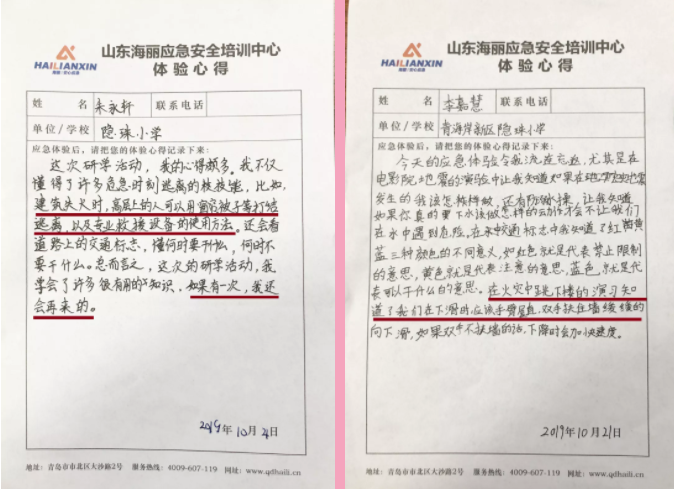 HAILIANXIN
山东海丽应急安全培训中心
体验心得
姓名 朱家轩 联系电话
单位/学校 隐珠小学
应急体验后,请把您的体验心得记录下来:
这次研学活动,我的心得颇多。我不仅
懂得了许多危急时刻逃离的技能,比如,
建筑失火时,高层上的人可以用窗帘被子等打结
逃离,以及专业救援设备的使用方法。还会看
道路上的交通标志,懂何时要干什么,何时不
要干什么。总而言之,这次的研学活动,我
学会了许多很有用的知识,如果有下一次,我还
会再来的。
2019年10月21日
地址:青岛市市北区大沙路2号 服务热线:4009-607-119 网址:www.qdhaili.cn
HAILIANXIN
山东海丽应急安全培训中心
体验心得
姓名 李嘉慧 联系电话
单位/学校 青海岸新区隐珠小学
应急体验后,请把您的体验心得记录下来:
今天的应急体验令我流连忘返,尤其是在
电影院地震的演验中让我知道如果在地震
发生的我该怎样做,还有防溺水,让我知道
如果你真的要下水该做怎样的动作才会不让我们
在水中遇到危险,在交通标志中我知道了红黄
蓝三种颜色的不同意义,如红色就是代表禁止限制
的意思,黄色就是代表注意的意思,蓝色,就是代
表可以干什么的意思。在火灾中跳下楼的演习知
道了我们在下滑时应该手臂,双手扶住墙缓缓的
向下滑,如果双手不扶墙的话,下降时会加快速度。
2019年10月21日
地址:青岛市市北区大沙路2号 服务热线:4009-607-119 网址:www.qdhaili.cn